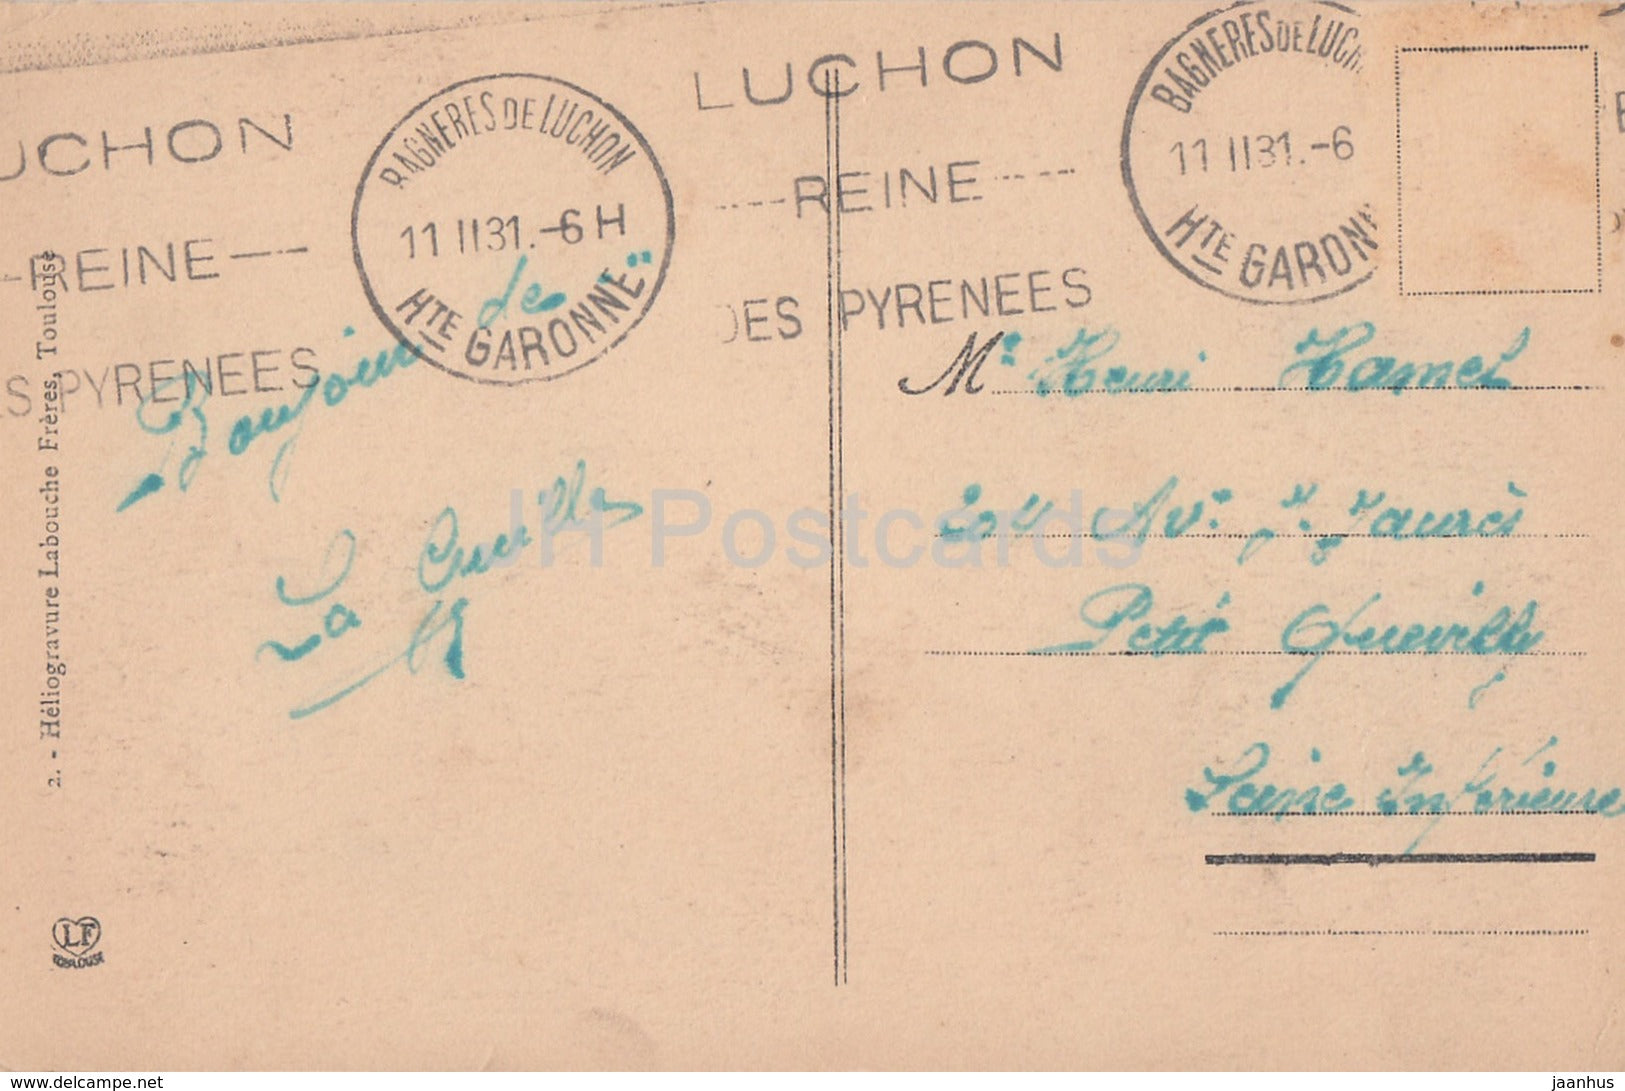 LUCHON
REINE
DES PYRENEES
BAGNERES DE LUCHON
11 II 31.-6
HTE GARONNE
UCHON
REINE
ES PYRENEES
BAGNERES DE LUCHON
11 II 31.-6 H
HTE GARONNE
Bonjour de :
La
2. - Héliogravure Labouche Frères, Toulouse
LF
TOULOUSE
Mr Henri Hamel
204 Av. J. Jaurès
Petit Quevilly
Seine Inférieure
JH Postcards
www.delcampe.net
jaanhus